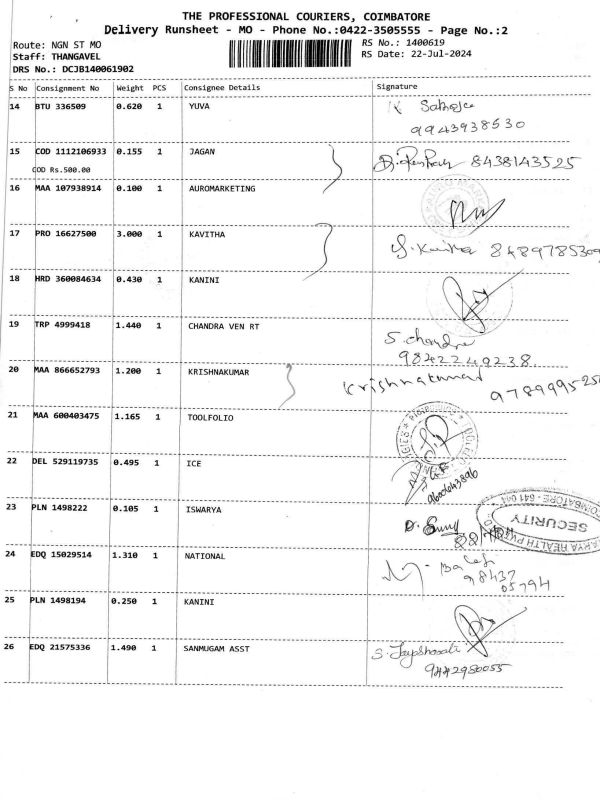 THE PROFESSIONAL COURIERS, COIMBATORE
Delivery Runsheet - MO - Phone No.:0422-3505555 - Page No.:2
Route: NGN ST MO RS No.: 1400619
Staff: THANGAVEL RS Date: 22-Jul-2024
DRS No.: DCJB140061902
S No Consignment No Weight PCS Consignee Details Signature
14 BTU 336509 0.620 1 YUVA
9943938530
15 COD 1112106933 0.155 1 JAGAN
8438143525
COD Rs.500.00
16 MAA 107938914 0.100 1 AUROMARKETING
17 PRO 16627500 3.000 1 KAVITHA
8489785309
18 HRD 360084634 0.430 1 KANINI
19 TRP 4999418 1.440 1 CHANDRA VEN RT
S. Chandra
9842249238.
20 MAA 866652793 1.200 1 KRISHNAKUMAR
Krishnakumar
21 MAA 600403475 1.165 1 TOOLFOLIO
22 DEL 529119735 0.495 1 ICE
9600643896
23 PLN 1498222 0.105 1 ISWARYA
SECURITY
24 EDQ 15029514 1.310 1 NATIONAL
98437
05794
25 PLN 1498194 0.250 1 KANINI
26 EDQ 21575336 1.490 1 SANMUGAM ASST
9442980055